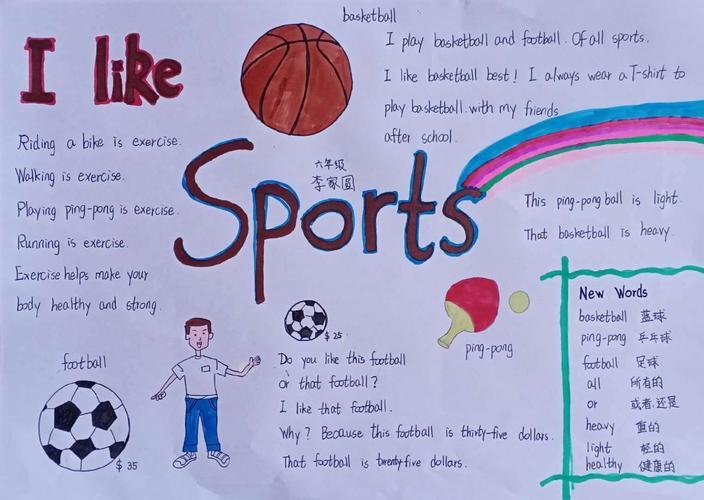 I like
basketball
I play basketball and football. Of all sports.
I like basketball best! I always wear a T-shirt to
play basketball with my friends
after school.
Riding a bike is exercise.
Walking is exercise.
Playing ping-pong is exercise.
Running is exercise.
Exercise helps make your
body healthy and strong.
六年级
李家圆
Sports
This ping-pong ball is light.
That basketball is heavy.
New Words
basketball 蓝球
ping-pong 乒乓球
football 足球
all 所有的
or 或者,还是
heavy 重的
light 轻的
healthy 健康的
ping-pong
$ 25
Do you like this football
or that football?
I like that football.
Why? Because this football is thirty-five dollars.
That football is twenty-five dollars.
football
$ 35